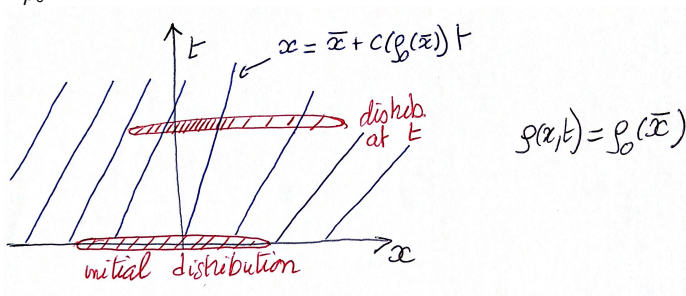 t
x = x̄ + c(ρ₀(x̄)) t
distrib.
at t
ρ(x,t) = ρ₀(x̄)
x
initial distribution